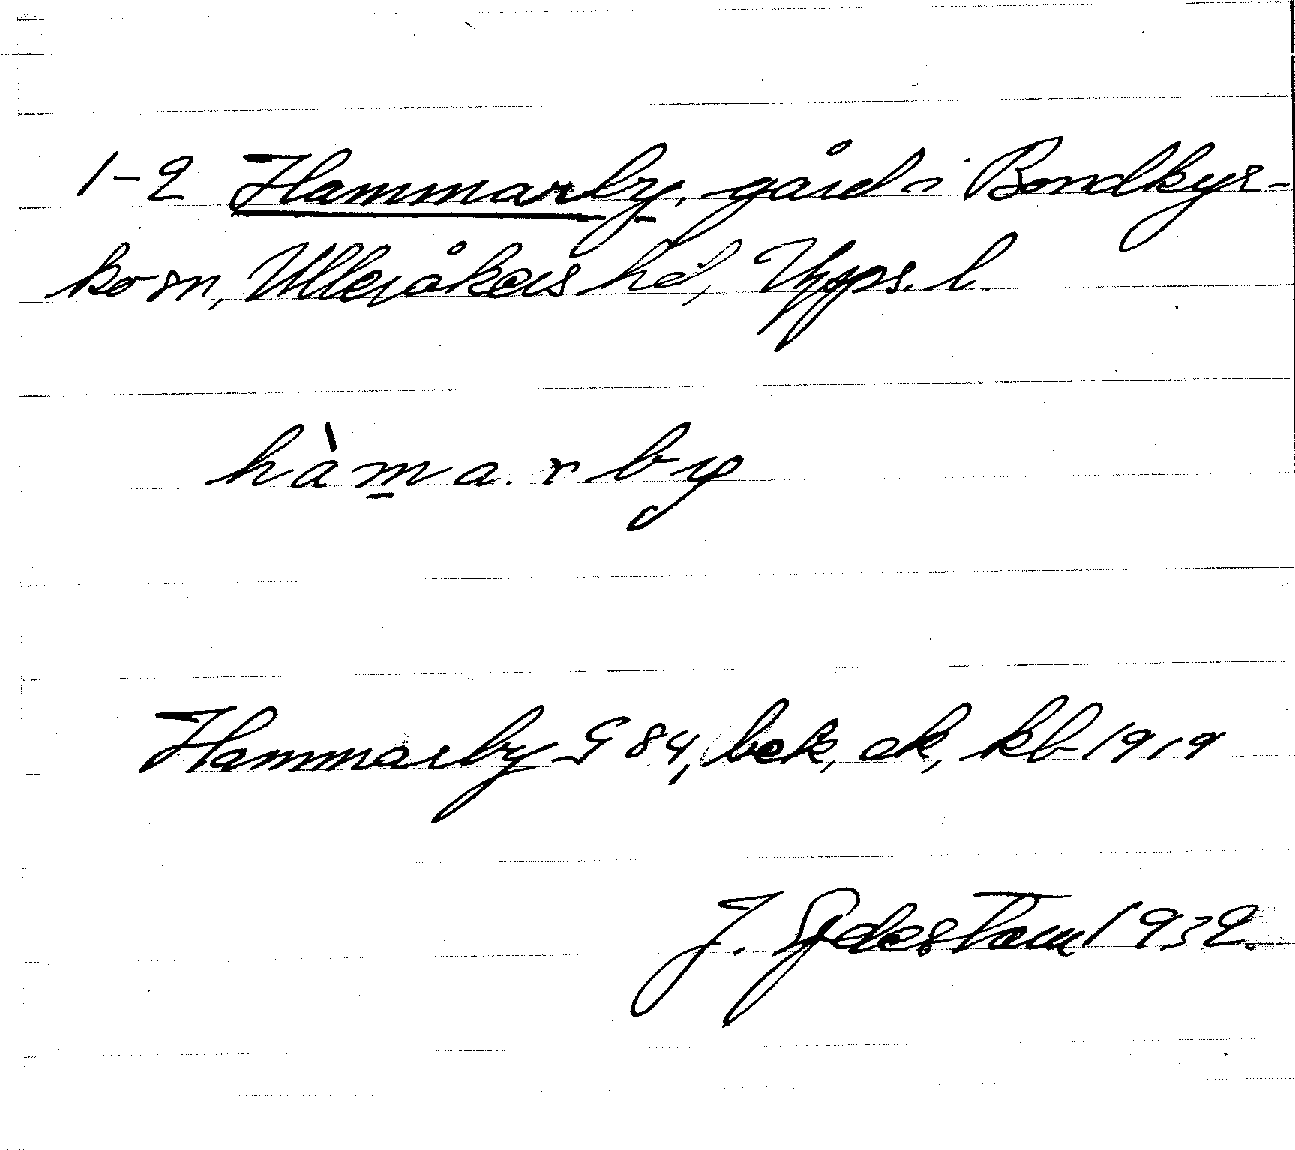 1-2 Hammarby, gård i Bondkyr-
ko sn, Ulleråkers hd, Upps. l.
hàm̱a.rby
Hammarby G 84, bek, ek, kb 1919
J. Sjdestam 1932.